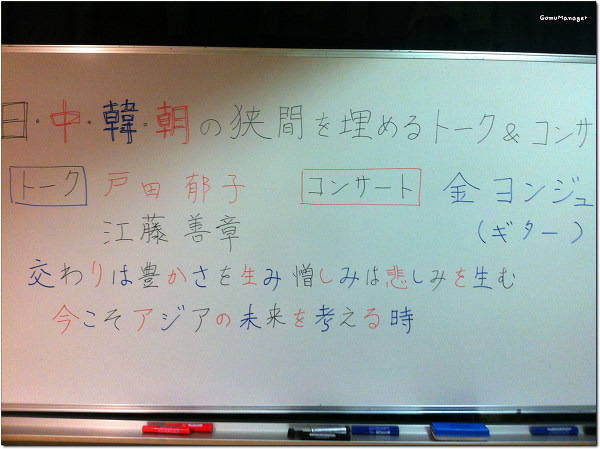 GomuManager
日・中・韓・朝の狭間を埋めるトーク&コンサ
トーク 戸田 郁子 コンサート 金 ヨンジュ
江藤 善章 (ギター)
交わりは豊かさを生み 憎しみは悲しみを生む
今こそアジアの未来を考える時